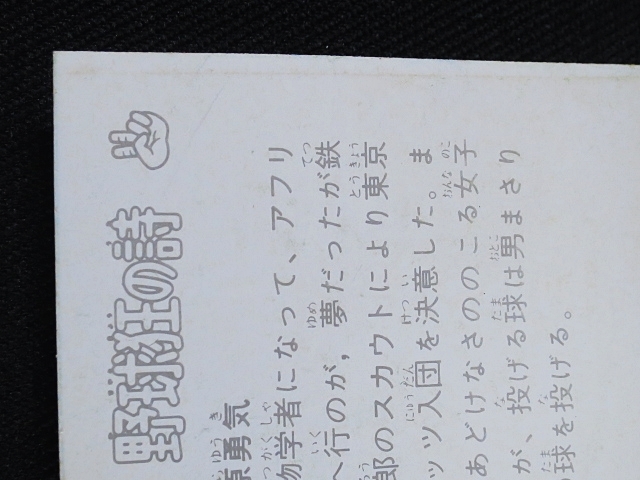 野球狂の詩
原勇気
物学者になって、アフリ
へ行のが、夢だったが鉄
郎のスカウトにより東京
ッツ入団を決意した。ま
あどけなさののこる女子
が、投げる球は男まさり
の球を投げる。